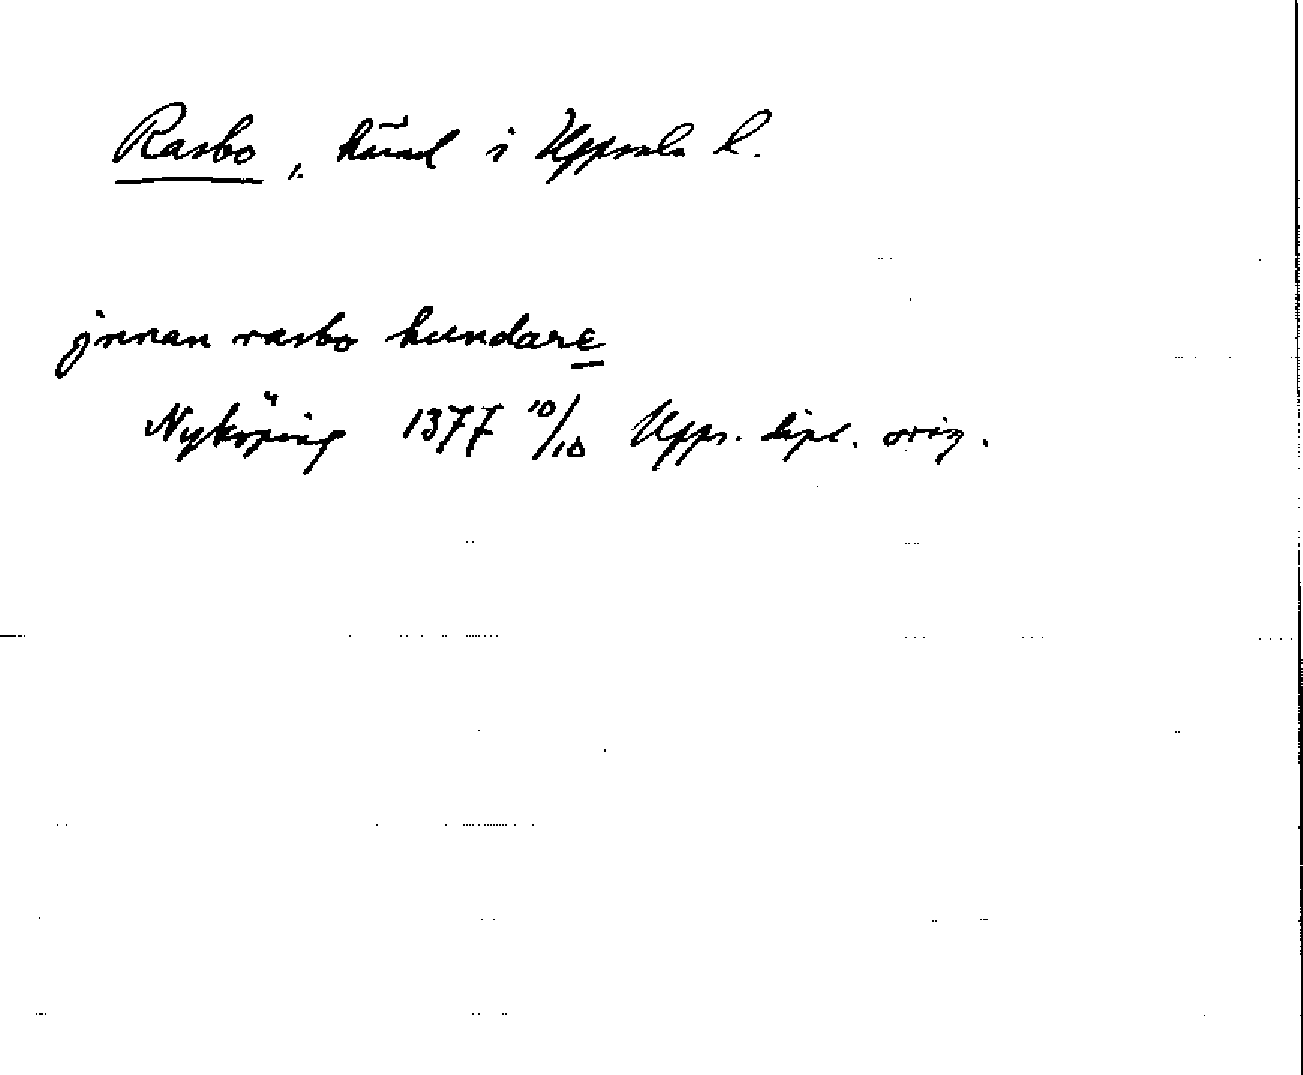 Rasbo, härad i Uppsala l.
jnnan rasbo hundare
Nyköping 1377 10/10 Upps. dipl. orig.